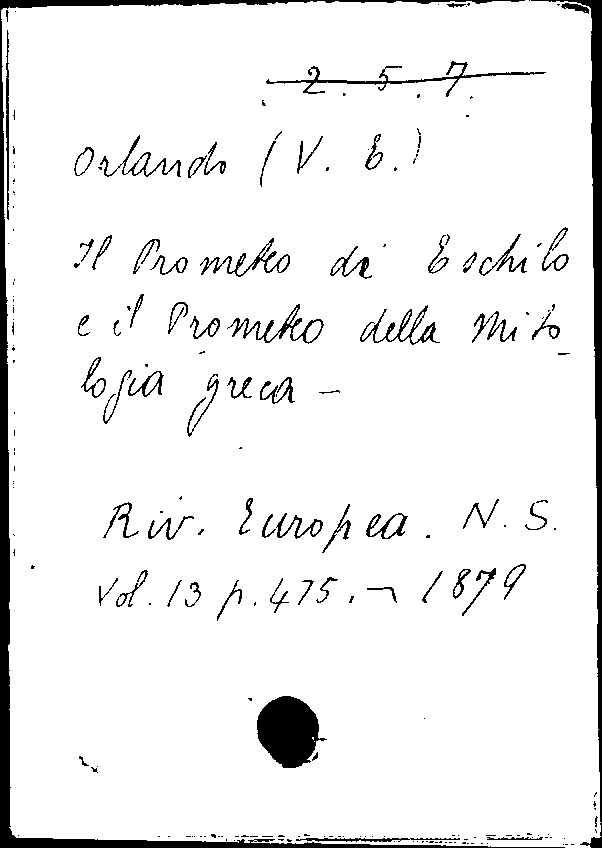 2.5.7.
Orlando (V. E.)
Il Prometeo di Eschilo
e il Prometeo della Mito-
logia greca -
Riv. Europea. N. S.
Vol. 13 p. 475. - 1879